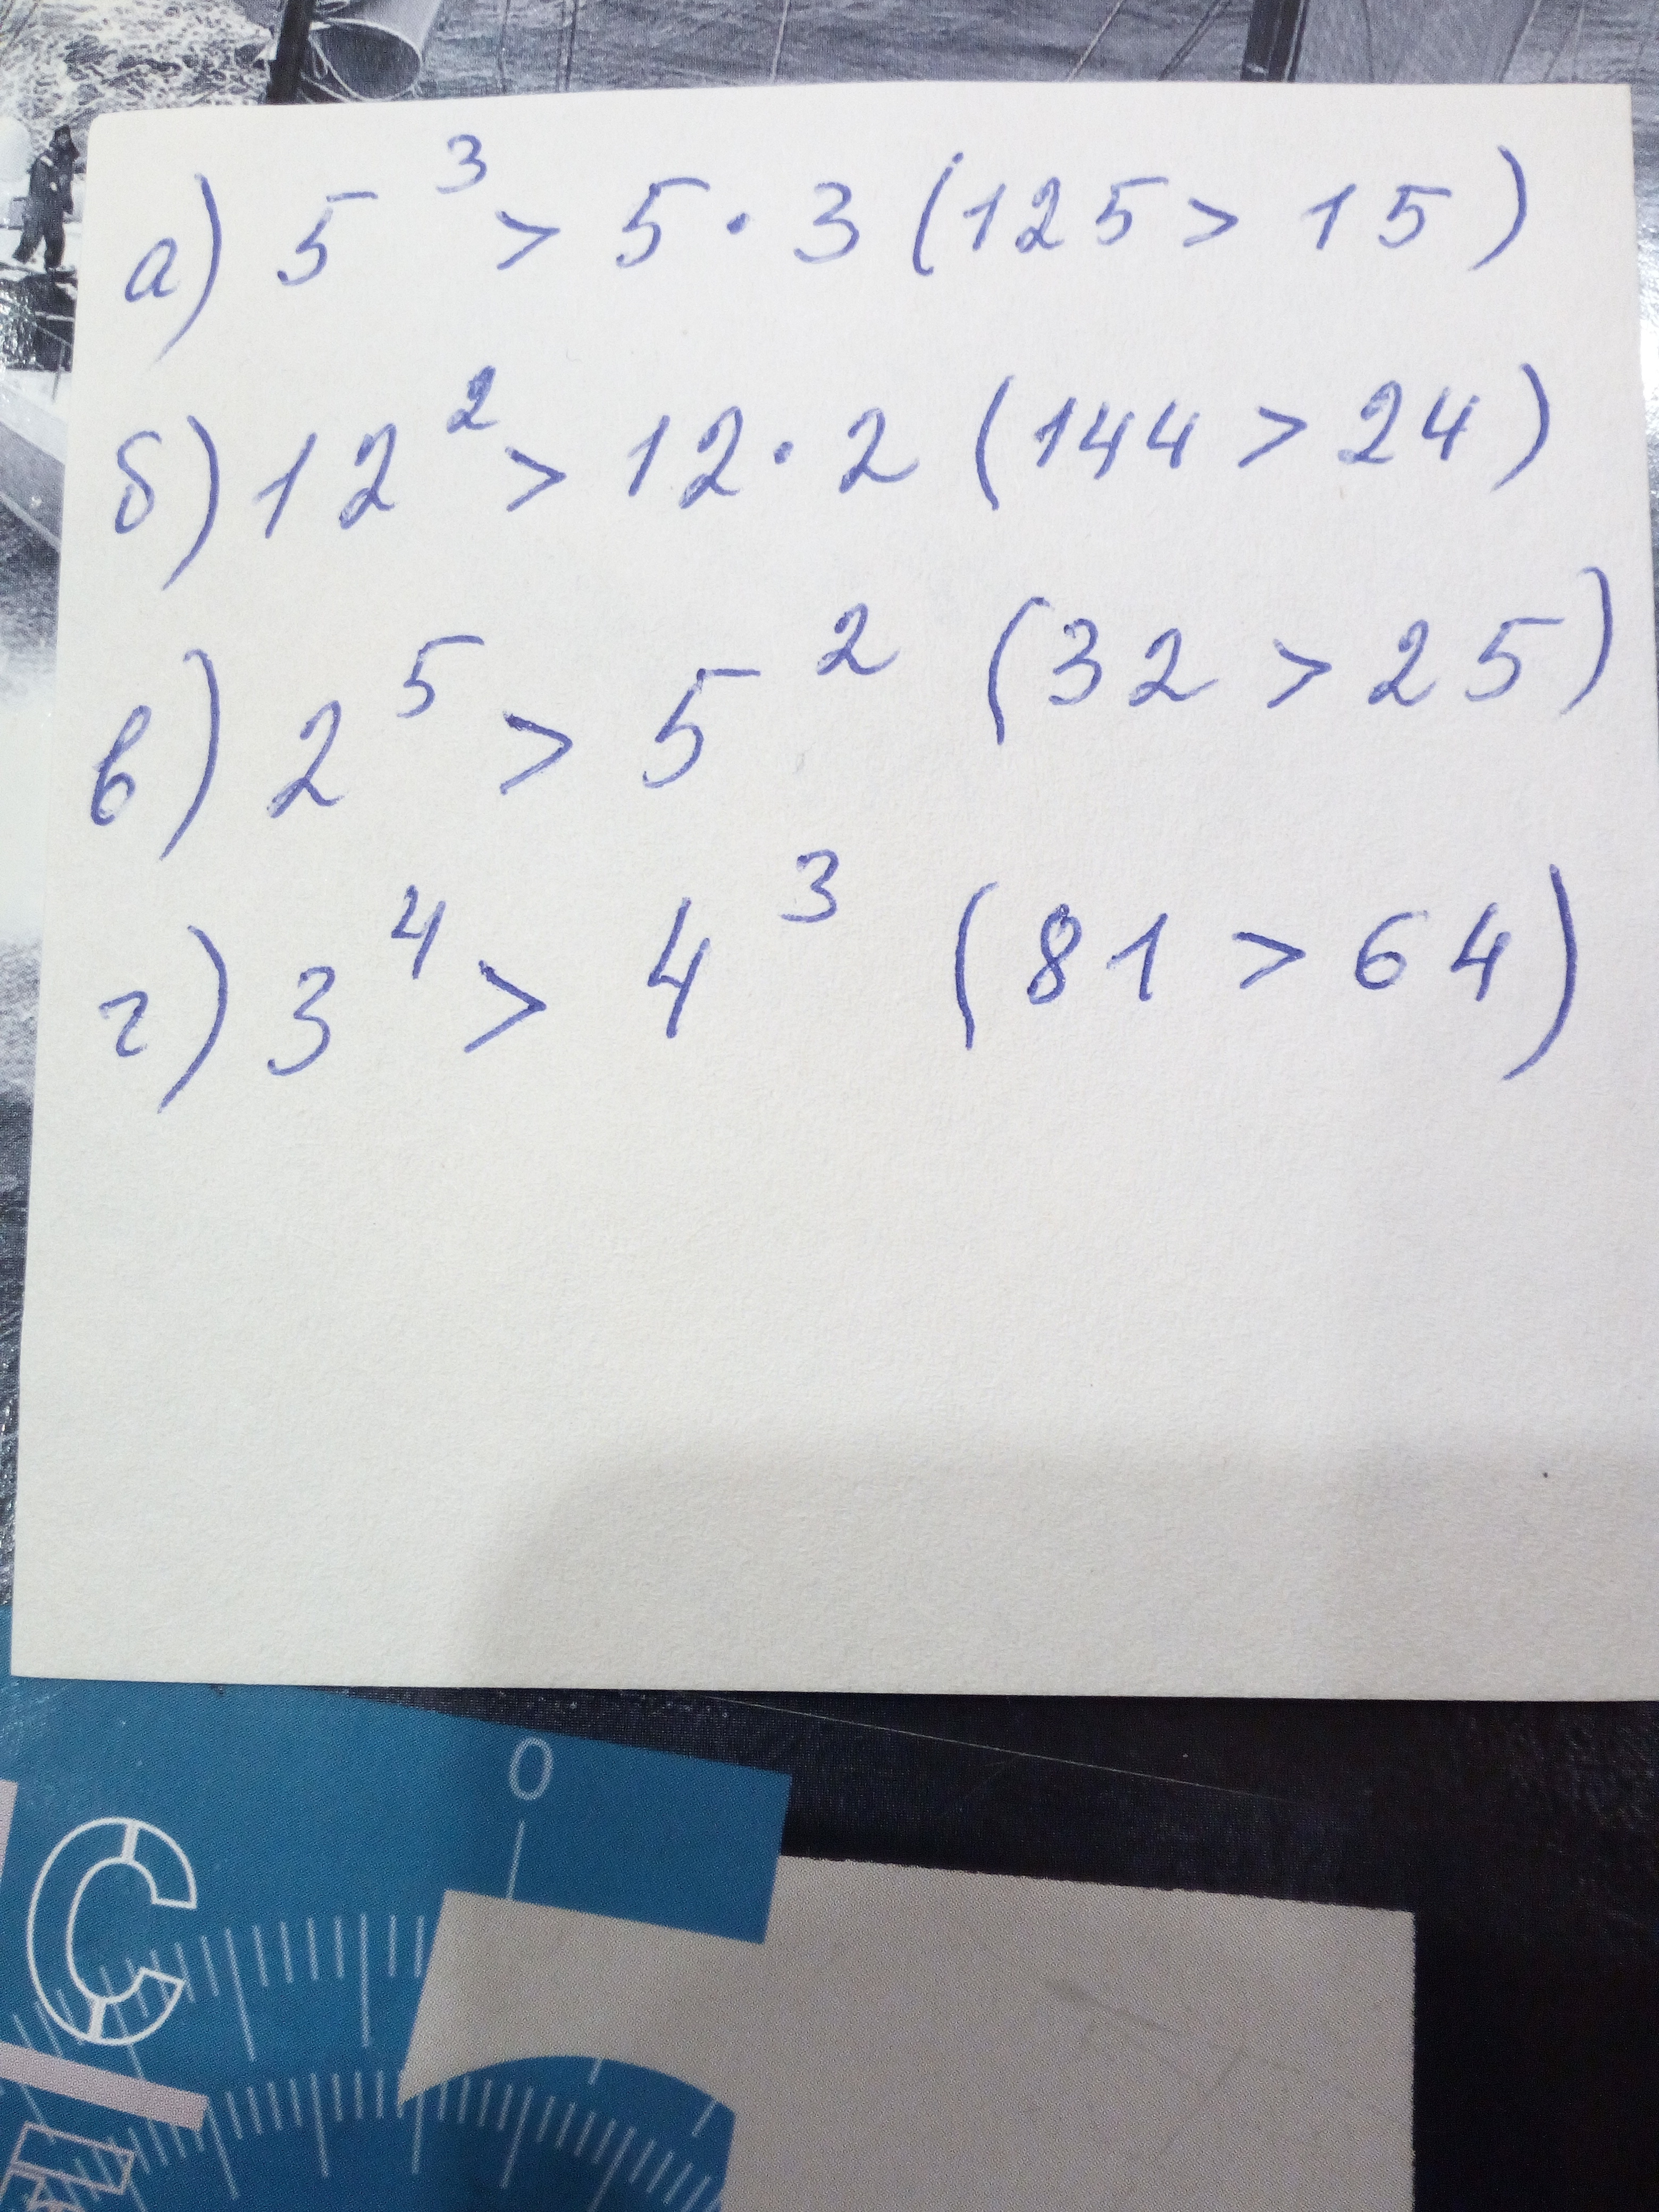 а) 5³ > 5 · 3 (125 > 15)
б) 12² > 12 · 2 (144 > 24)
в) 2⁵ > 5² (32 > 25)
г) 3⁴ > 4³ (81 > 64)
0
С